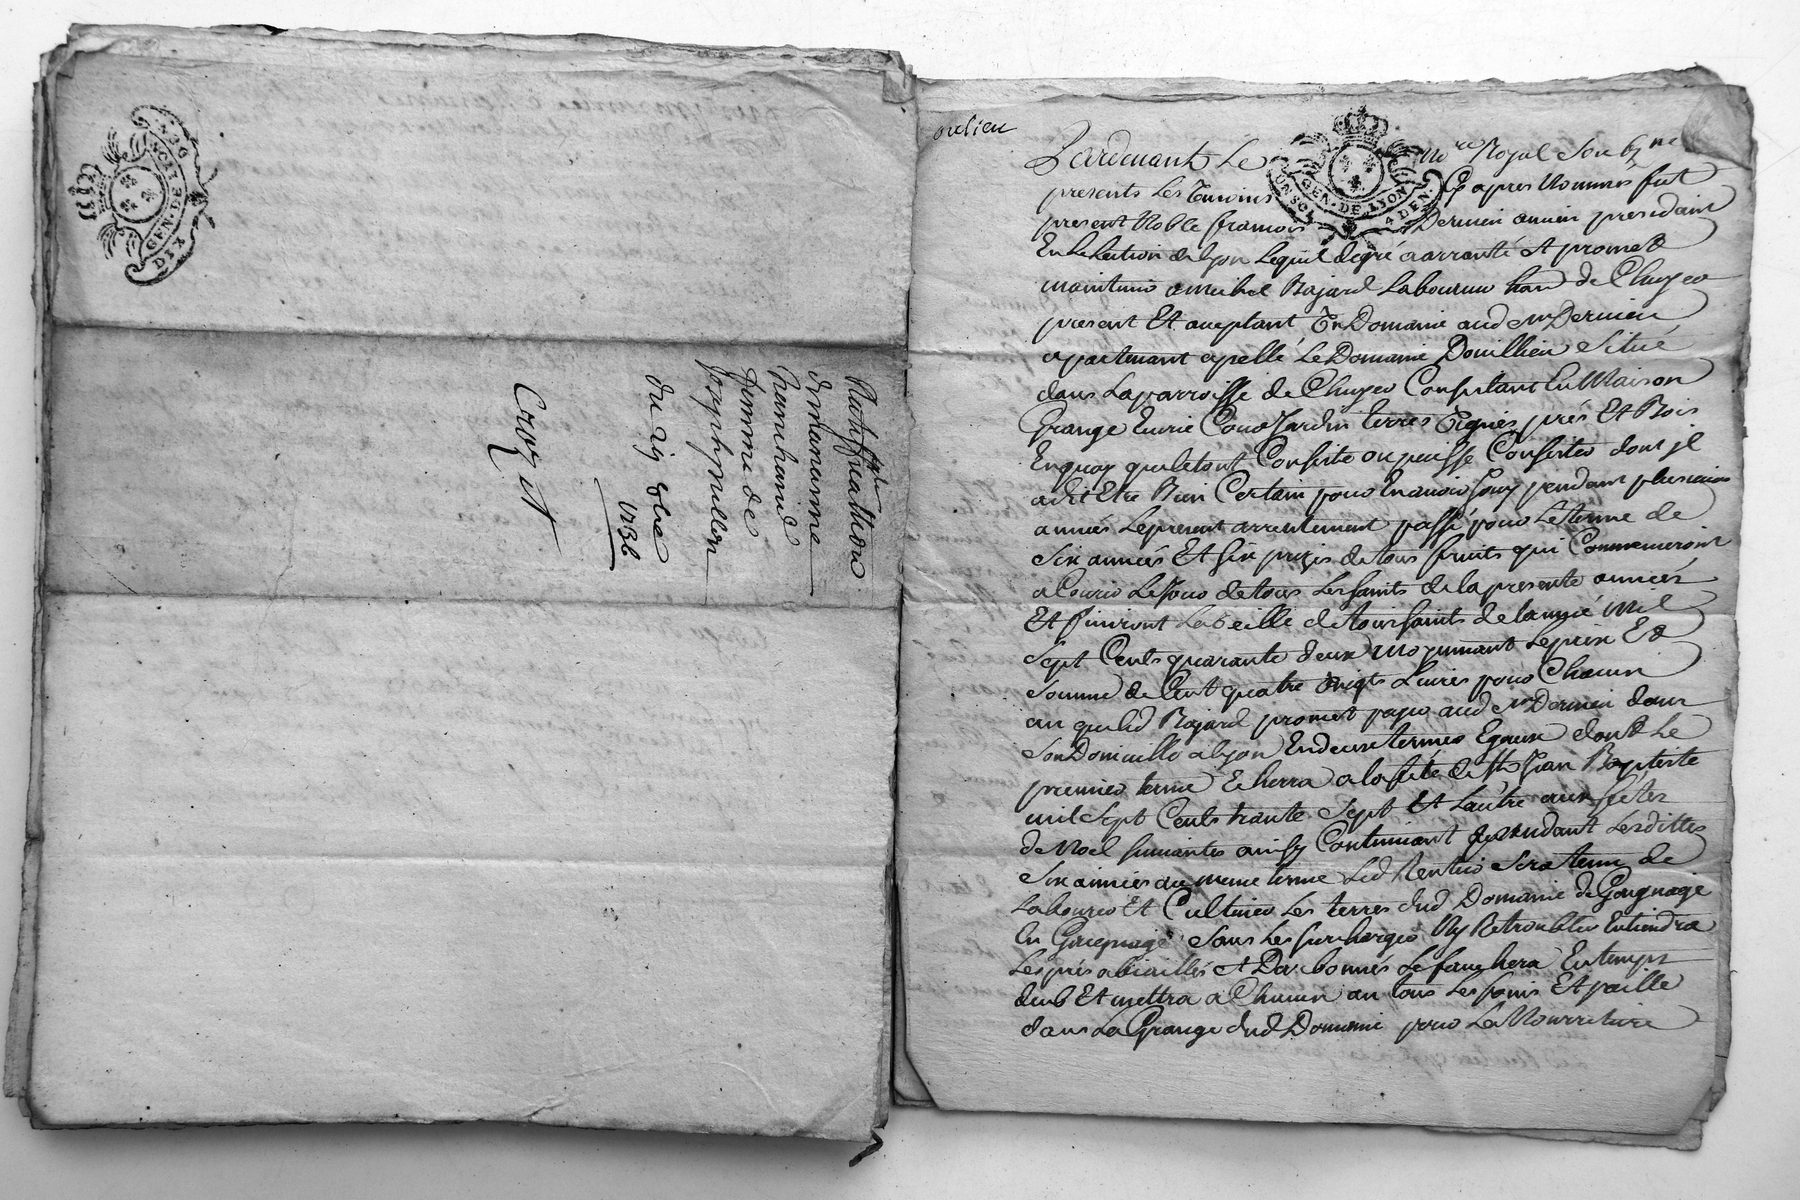 GEN. DE LYON
DIX DEN
Ratiffication
de marianne
marchand
femme de
Joseph mellon
du 29 8bre
1736
Crozet
oulieu
Pardevant Le No.re Royal Soubz.né
presents Les Temoins Cy apres Nommés fut
UN SOL GEN. DE LYON 4 DEN.
present Noble françois Dernieu ancien president
En Lelection de lyon Lequel degré a arranté et promet
maintenir a michel Bajard Laboureur han de Chuyer
present Et aceptant Un Domaine aud Sr Dernieu
apartenant apellé Le Domaine Douillieu Situé
dans La parroisse de Chuyer Consistant En Maison
Grange Eurie Cour Jardin terres Vignes prés Et Bois
En quoy quil et ont Consiste ou puisse Consister dont jl
a dit Etre Bien Certain pour En avoir Jouy pendant plusieurs
années Le present arrentement passé pour Le terme de
Six années Et Six prizes de tous fruits qui Commenceront
a Courir Le Jour de tous Les Saints de la presente année
Et finiront La Veille de toussaints de Lannée Mil
Sept Cents quarante deux Moyennant Le prix Et
Somme de Cent quatre Vingts Livres pour Chacun
an que Led Bajard promet payer aud Sr Dernieu dans
Son Domicille a lyon En deux termes Egaux dont Le
premier terme Echerra a la fete de St Jean Baptiste
mil Sept Cents trante Sept Et Lautre aux fetes
de Noel Suivantes ainsy Continuant pendant Lesdittes
Six années au meme terme Led Rentier Sera tenu de
Labourer Et Cultiver Les terres dud Domaine de Gaignage
En Gaignage Sans Les Surcharger Ny Retroubler Entiendra
Les prés abiaillés et Darbonnés Le fauchera En temps
deub Et mettra a Chacun an tous Les foins Et paille
dans La Grange dud Domaine pour La Nourriture